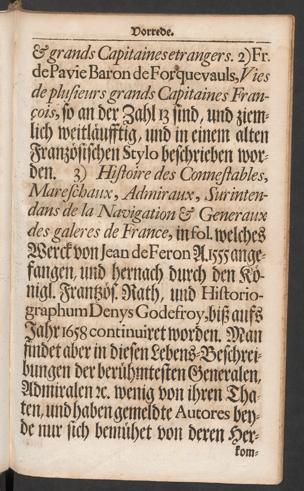 Vorrede.
& grands Capitaines etrangers. 2) Fr.
de Pavie Baron de Forquevauls, Vies
de plusieurs grands Capitaines Fran-
çois, so an der Zahl 13 sind, und ziem-
lich weitläufftig, und in einem alten
Französischen Stylo beschrieben wor-
den. 3) Histoire des Connestables,
Mareschaux, Admiraux, Surinten-
dans de la Navigation & Generaux
des galeres de France, in fol. welches
Werck von Jean de Feron A. 1555 ange-
fangen, und hernach durch den Kö-
nigl. Frantzös. Rath, und Historio-
graphum Denys Godefroy, biß aufs
Jahr 1658 continuiret worden. Man
findet aber in diesen Lebens-Beschrei-
bungen der berühmtesten Generalen,
Admiralen ꝛc. wenig von ihren Tha-
ten, und haben gemeldte Autores bey-
de nur sich bemühet von deren Her-
kom-